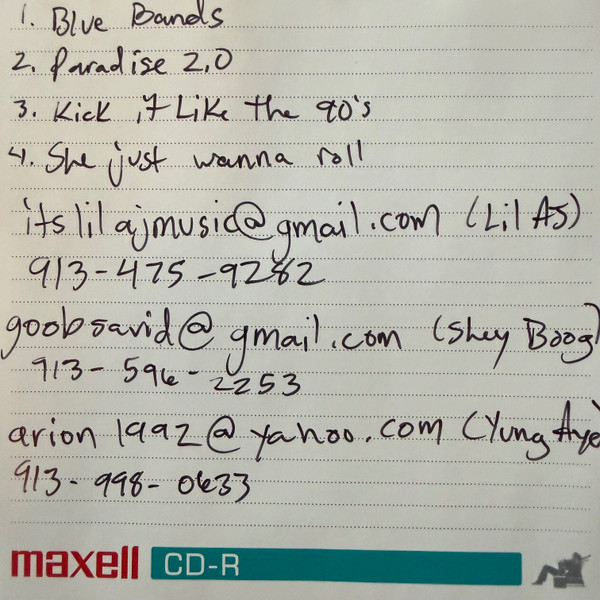 1. Blue Bands
2. Paradise 2.0
3. Kick it Like the 90's
4. She just wanna roll
itslilajmusic@gmail.com (Lil AJ)
913-475-9282
goobsavid@gmail.com (Shey Boog)
913-596-2253
arion1992@yahoo.com (Yung Aye)
913-998-0633
maxell CD-R